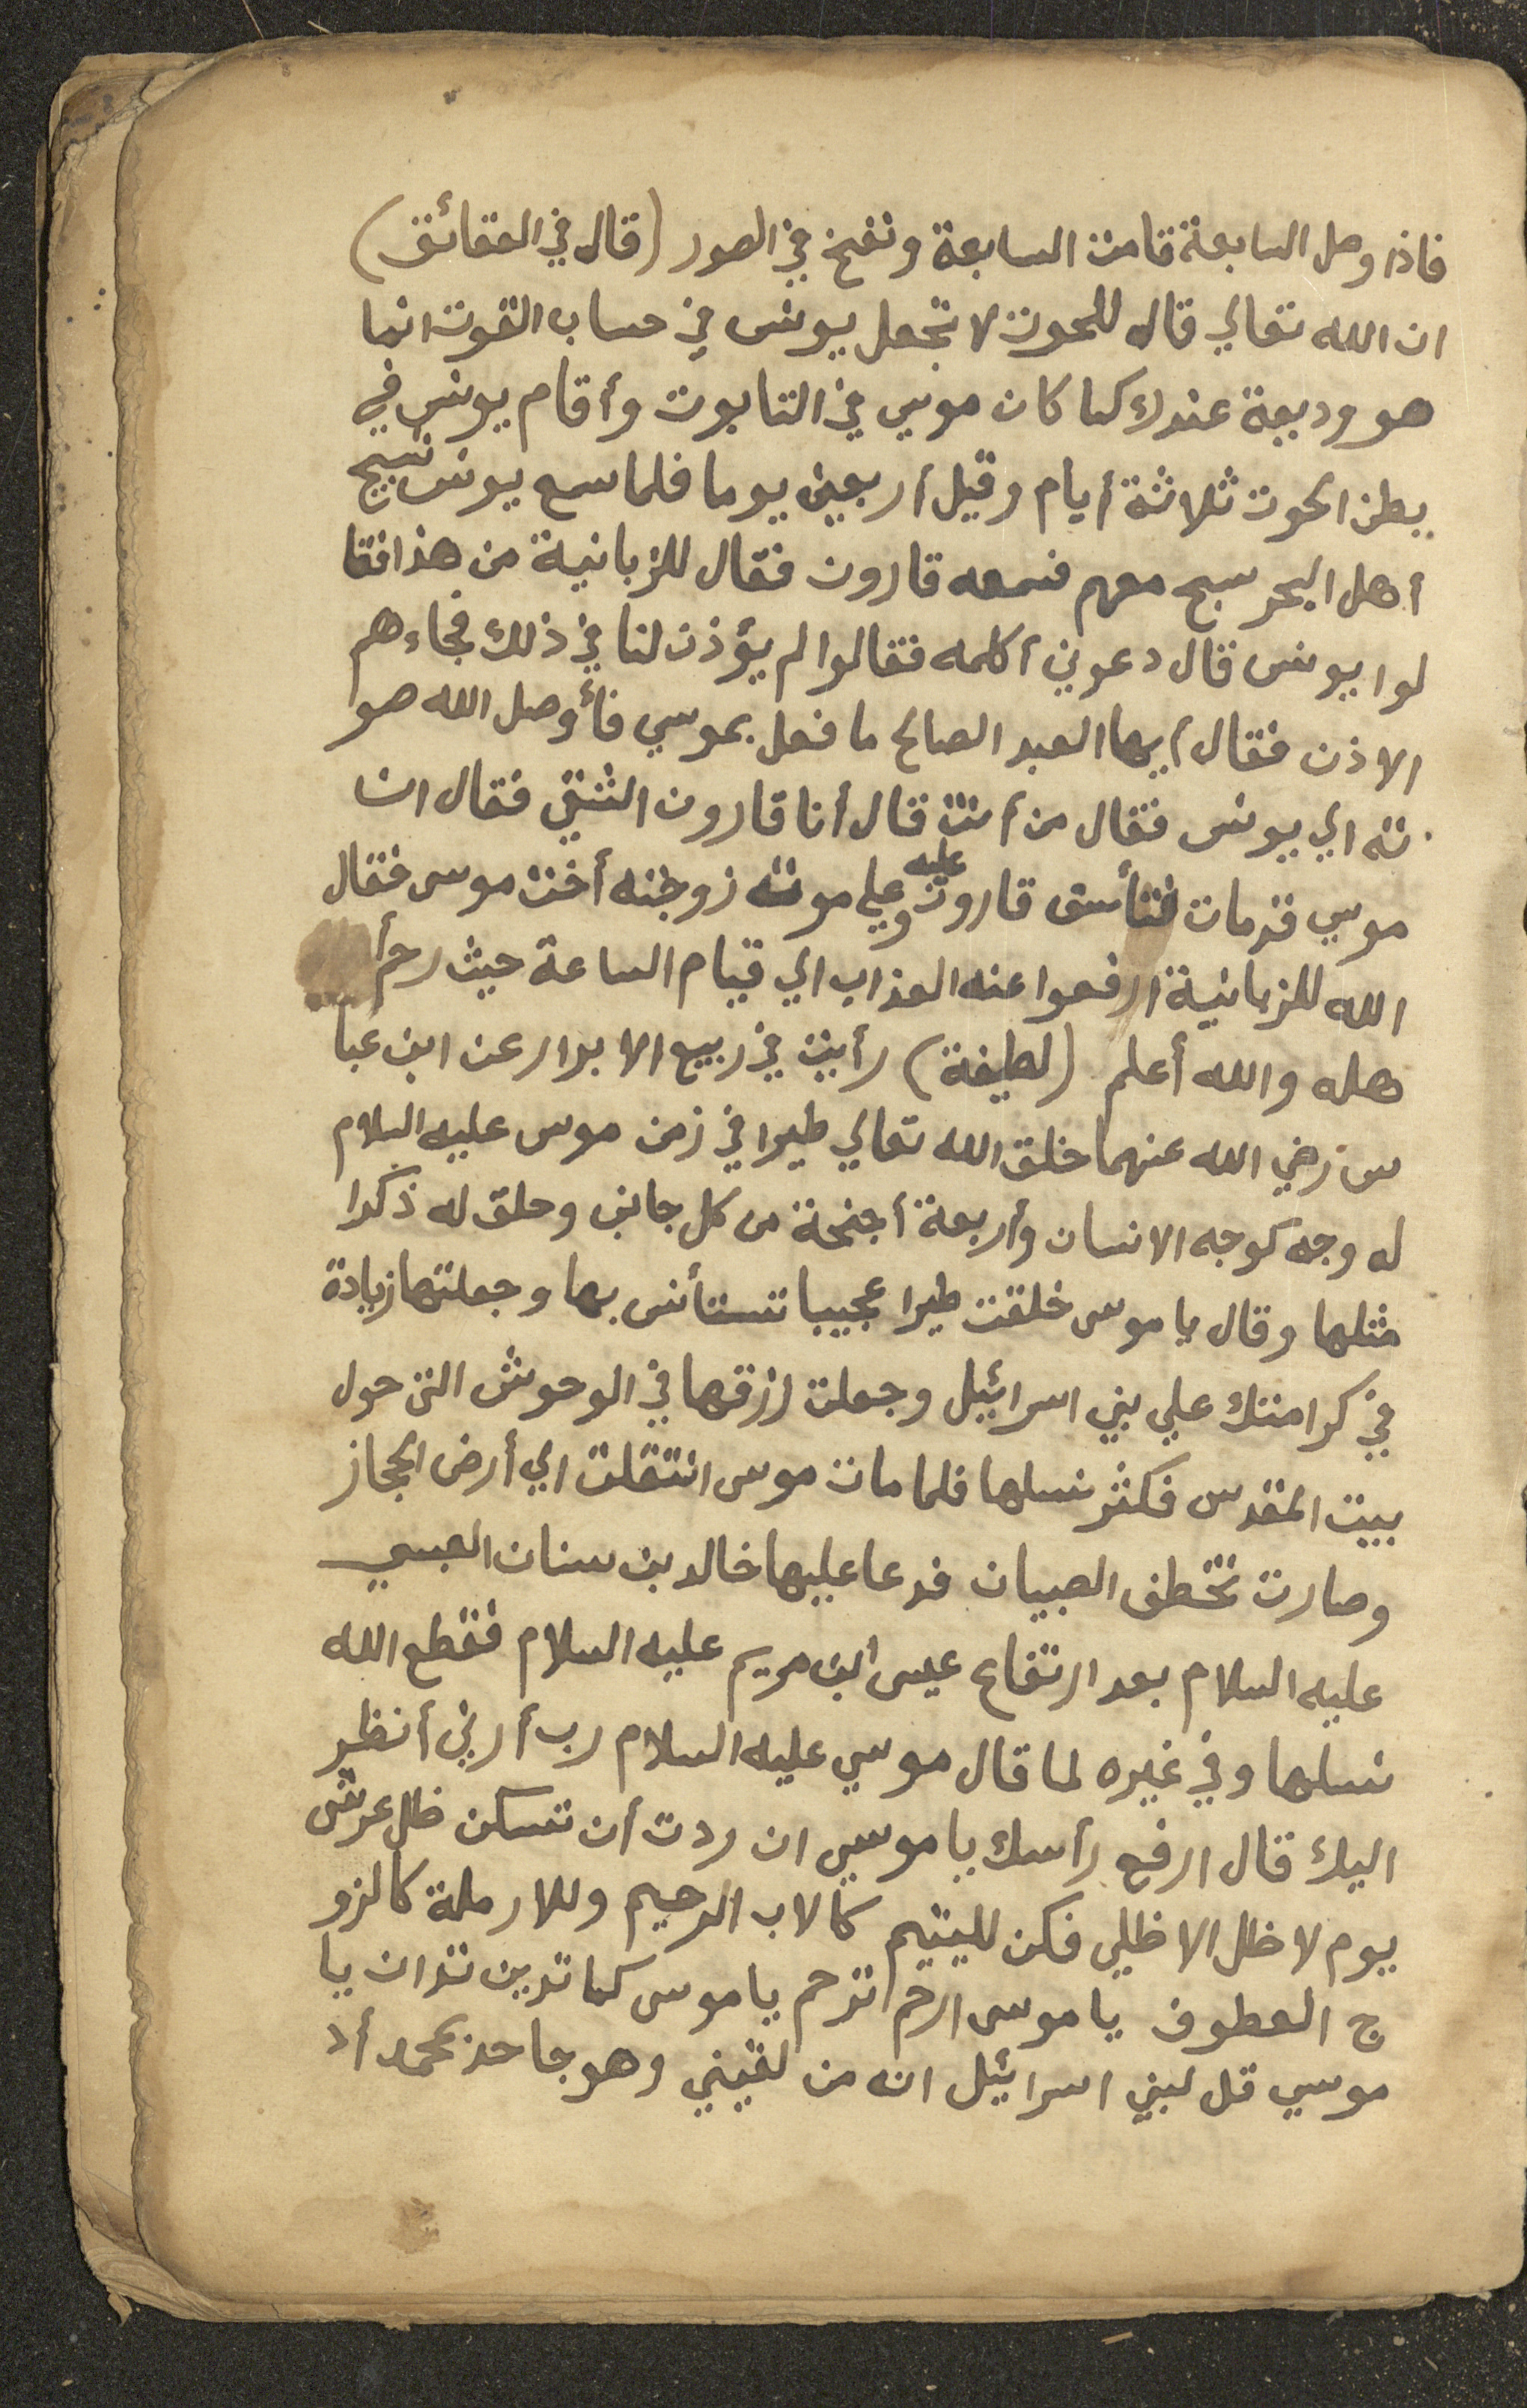 فاذا وصل السابعة قامت السابعة ونفخ في الصور (قال في العقائق)
ان الله تعالي قال للحوت لا تجعل يونس في حساب القوت انما
هو وديعة عندك كما كان موسي في التابوت وأقام يونس في
بطن الحوت ثلاثة أيام وقيل أربعين يوما فلما سمع يونس تسبيح
أهل البحر سبح معهم فسمعه قارون فقال للزبانية من هذا فقا
لوا يونس قال دعوني أكلمه فقالوا لم يؤذن لنا في ذلك فجاءهم
الاذن فقال أيها العبد الصالح ما فعل بموسي فأوصل الله صو
ته الي يونس فقال من أنت قال أنا قارون الشقي فقال ان
موسي قد مات فتأسف قارون عليه وعلي موته زوجته أخت موسى فقال
الله للزبانية ارفعوا عنه العذاب الي قيام الساعة حيث رحم أ
هله والله أعلم (لطيفة) رأيت في ربيع الابرار عن ابن عبا
س رضي الله عنهما خلق الله تعالي طيرا في زمن موسى عليه السلام
له وجه كوجه الانسان وأربعة أجنحة من كل جانب وخلق له ذكرا
مثلها وقال يا موسى خلقت طيرا عجيبا تستأنس بها وجعلتها زيادة
في كرامتك علي بني اسرائيل وجعلت رزقها في الوحوش التي حول
بيت المقدس فكثر نسلها فلما مات موسى انتقلت الي أرض الحجاز
وصارت تخطف الصبيان فدعا عليها خالد بن سنان العبسي
عليه السلام بعد ارتفاع عيسى ابن مريم عليه السلام فقطع الله
نسلها وفي غيره لما قال موسي عليه السلام رب أرني أنظر
اليك قال ارفع رأسك يا موسي ان ردت أن تسكن ظل عرشي
يوم لا ظل الا ظلي فكن لليتيم كالاب الرحيم وللارملة كالزو
ج العطوف يا موسى ارحم ترحم يا موسى كما تدين تدان يا
موسي قل لبني اسرائيل انه من لقيني وهو جاحد بمحمد أد